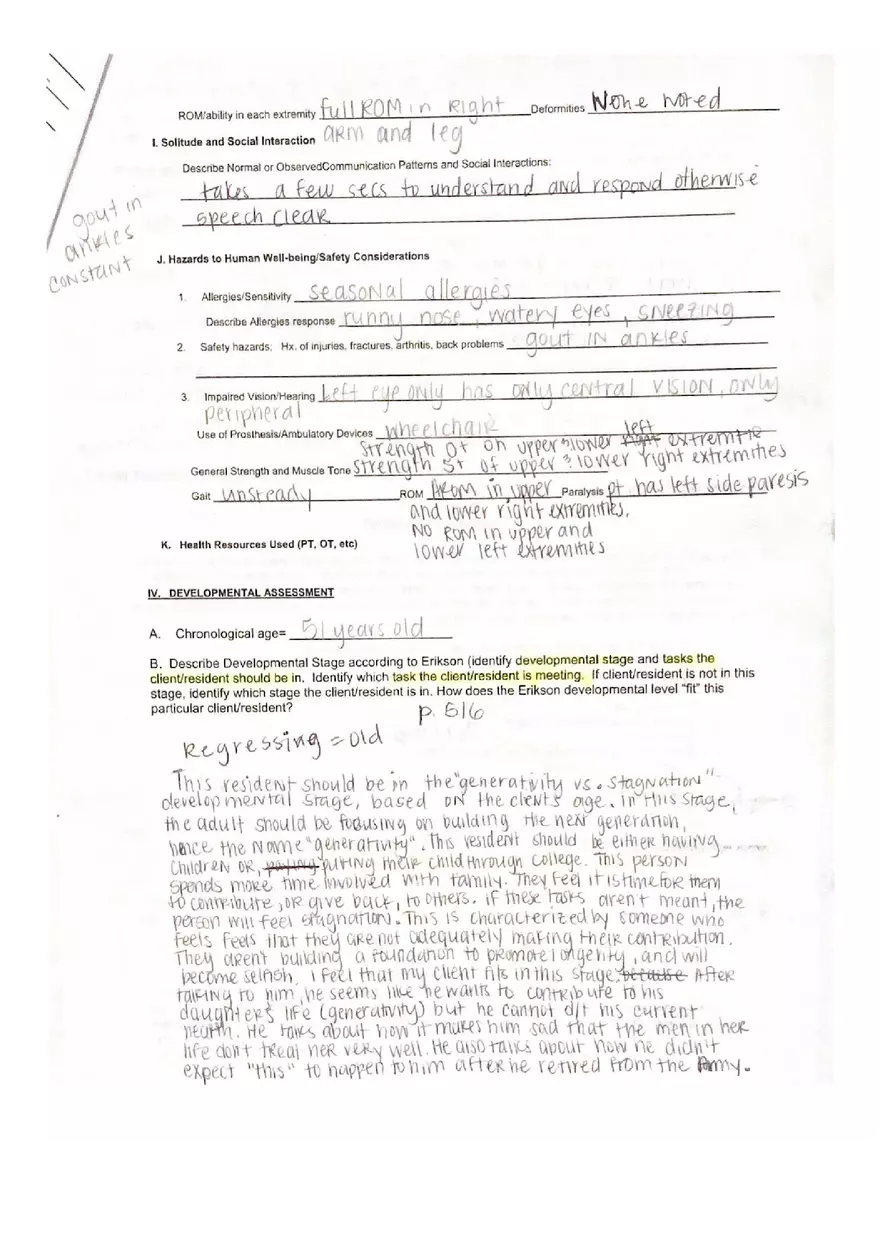 ROM/ability in each extremity full ROM in Right Deformities None Noted
I. Solitude and Social Interaction arm and leg
Describe Normal or ObservedCommunication Patterns and Social Interactions:
takes a few secs to understand and respond otherwise
speech clear
gout in
ankles
constant
J. Hazards to Human Well-being/Safety Considerations
1. Allergies/Sensitivity Seasonal allergies
Describe Allergies response runny nose, watery eyes, sneezing
2. Safety hazards; Hx. of injuries, fractures, arthritis, back problems gout in ankles
3. Impaired Vision/Hearing Left eye only has only central vision, only
peripheral
Use of Prosthesis/Ambulatory Devices wheelchair
left
Strength 0+ on upper & lower extremitie
General Strength and Muscle Tone Strength 5+ of upper & lower right extremities
Gait unsteady ROM AROM in upper Paralysis pt has left side paresis
and lower right extremities.
NO ROM in upper and
K. Health Resources Used (PT, OT, etc)
lower left extremities
IV. DEVELOPMENTAL ASSESSMENT
A. Chronological age= 51 years old
B. Describe Developmental Stage according to Erikson (identify developmental stage and tasks the
client/resident should be in. Identify which task the client/resident is meeting. If client/resident is not in this
stage, identify which stage the client/resident is in. How does the Erikson developmental level "fit" this
particular client/resident?
p. 516
Regressing = old
This resident should be in the "generativity vs. stagnation"
developmental stage, based on the clients age. In this stage,
the adult should be focusing on building the new generation,
hence the name "generativity". This resident should be either having
children or, puting their child through college. This person
spends more time involved with family. They feel it is time for them
to contribute, or give back, to others. if these tasks aren't meant, the
person will feel stagnation. This is characterized by someone who
feels feels that they are not adequately making their contribution.
They aren't building a foundation to promote longevity, and will
become selfish. I feel that my client fits in this stage. because After
talking to him, he seems like he wants to contribute to his
daughters life (generativity) but he cannot d/t his current
health. He talks about how it makes him sad that the men in her
life don't treat her very well. He also talks about how he didn't
expect "this" to happen to him after he retired from the Army.